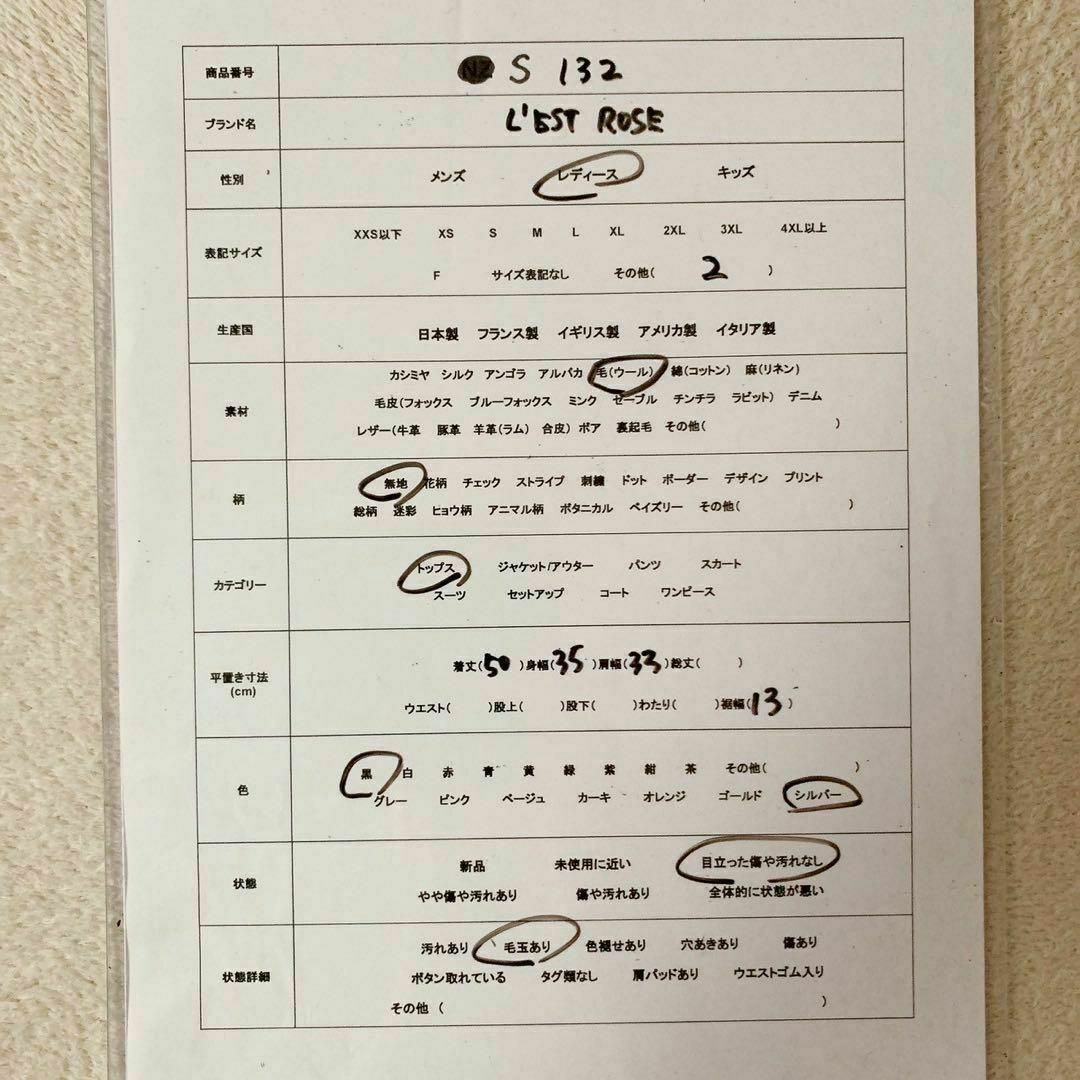 商品番号 NZ S 132
ブランド名 L'EST ROSE
性別 メンズ レディース キッズ
XXS以下 XS S M L XL 2XL 3XL 4XL以上
表記サイズ
F サイズ表記なし その他( 2 )
生産国 日本製 フランス製 イギリス製 アメリカ製 イタリア製
カシミヤ シルク アンゴラ アルパカ 毛(ウール) 綿(コットン) 麻(リネン)
毛皮(フォックス ブルーフォックス ミンク セーブル チンチラ ラビット) デニム
素材
レザー(牛革 豚革 羊革(ラム) 合皮) ボア 裏起毛 その他( )
無地 花柄 チェック ストライプ 刺繍 ドット ボーダー デザイン プリント
柄
総柄 迷彩 ヒョウ柄 アニマル柄 ボタニカル ペイズリー その他( )
トップス ジャケット/アウター パンツ スカート
カテゴリー
スーツ セットアップ コート ワンピース
着丈(50)身幅(35)肩幅(33)総丈( )
平置き寸法
(cm)
ウエスト( )股上( )股下( )わたり( )裾幅(13)
黒 白 赤 青 黄 緑 紫 紺 茶 その他( )
色
グレー ピンク ベージュ カーキ オレンジ ゴールド シルバー
新品 未使用に近い 目立った傷や汚れなし
状態
やや傷や汚れあり 傷や汚れあり 全体的に状態が悪い
汚れあり 毛玉あり 色褪せあり 穴あきあり 傷あり
状態詳細
ボタン取れている タグ類なし 肩パッドあり ウエストゴム入り
その他 ( )